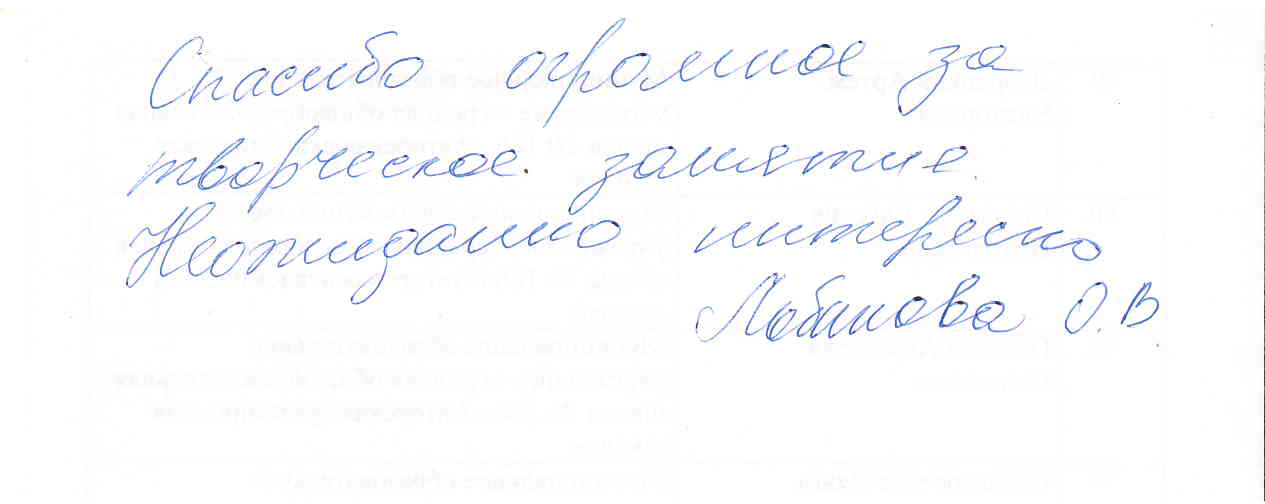 Спасибо огромное за
творческое занятие.
Неожиданно интересно
Лобанова О.В.